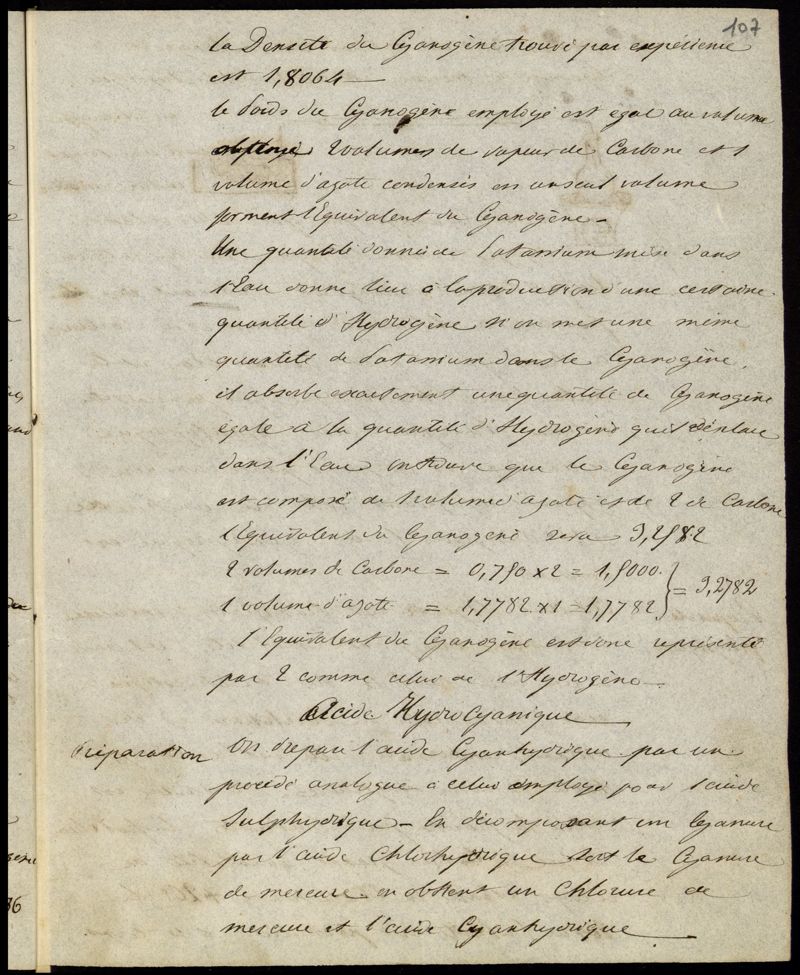 107
la Densité du Cyanogène trouvé par expérience
est 1,8064
le Poids du Cyanogène employé est égal au volume
obtenu 2 volumes de vapeur de Carbone et 1
volume d'azote condensés en un seul volume
forment l'Equivalent du Cyanogène -
Une quantité donnée de Potassium mise dans
l'Eau donne lieu à la production d'une certaine
quantité d'Hydrogène si on met une même
quantité de Potassium dans le Cyanogène,
il absorbe exactement une quantité de Cyanogène
égale à la quantité d'Hydrogène qu'il déplace
dans l'Eau on trouve que le Cyanogène
est composé de 1 volume d'azote et de 2 de Carbone
l'Equivalent du Cyanogène sera 3,2782
2 volumes de Carbone = 0,750 x 2 = 1,5000.
1 volume d'azote = 1,7782 x 1 = 1,7782 } = 3,2782
l'Equivalent du Cyanogène est donc représenté
par 2 comme celui de l'Hydrogène -
Acide HydroCyanique
Préparation
On prépare l'acide Cyanhydrique par un
procédé analogue à celui employé pour l'acide
Sulphydrique - En décomposant un Cyanure
par l'acide Chlorhydrique soit le Cyanure
de mercure on obtient un Chlorure de
mercure et l'acide Cyanhydrique